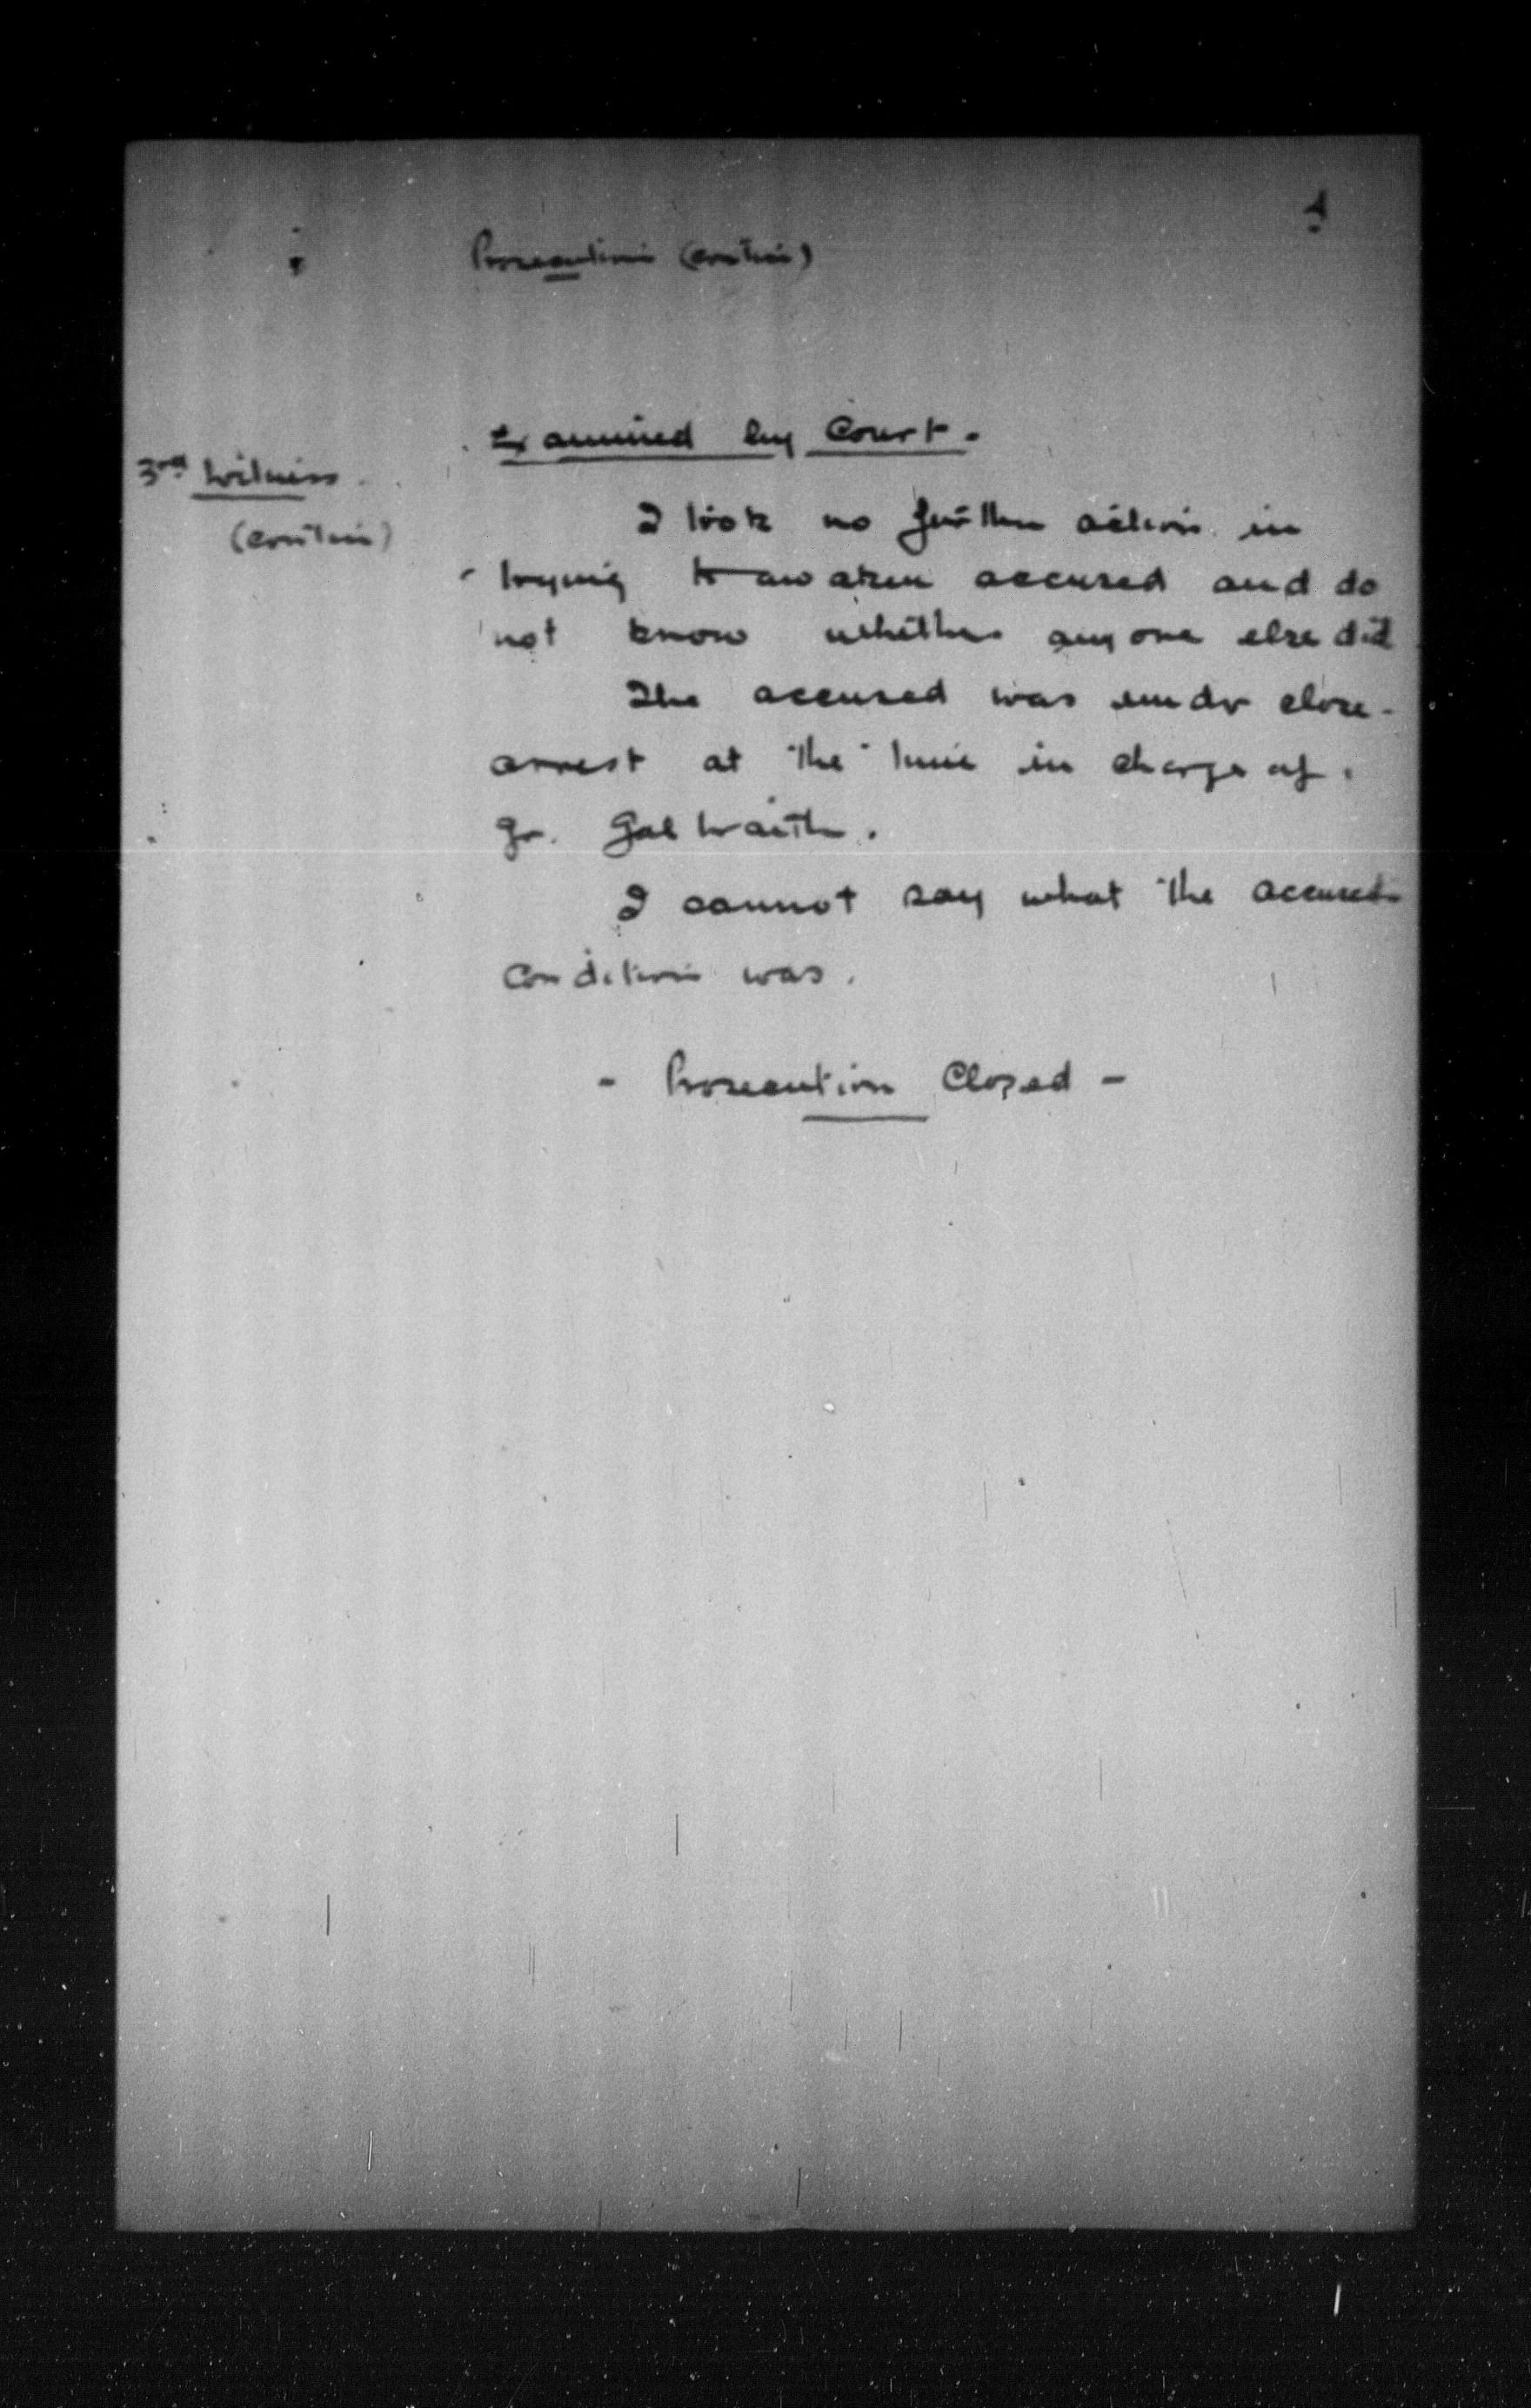 Prosecution (contin)
Examined by Court.
3rd Witness.
(contin)
I took no further action in
trying to awaken accused and do
not know whether anyone else did
The accused was under close
arrest at the time in charge of
Gr. Galbraith.
I cannot say what the accused
condition was.
- Prosecution Closed -